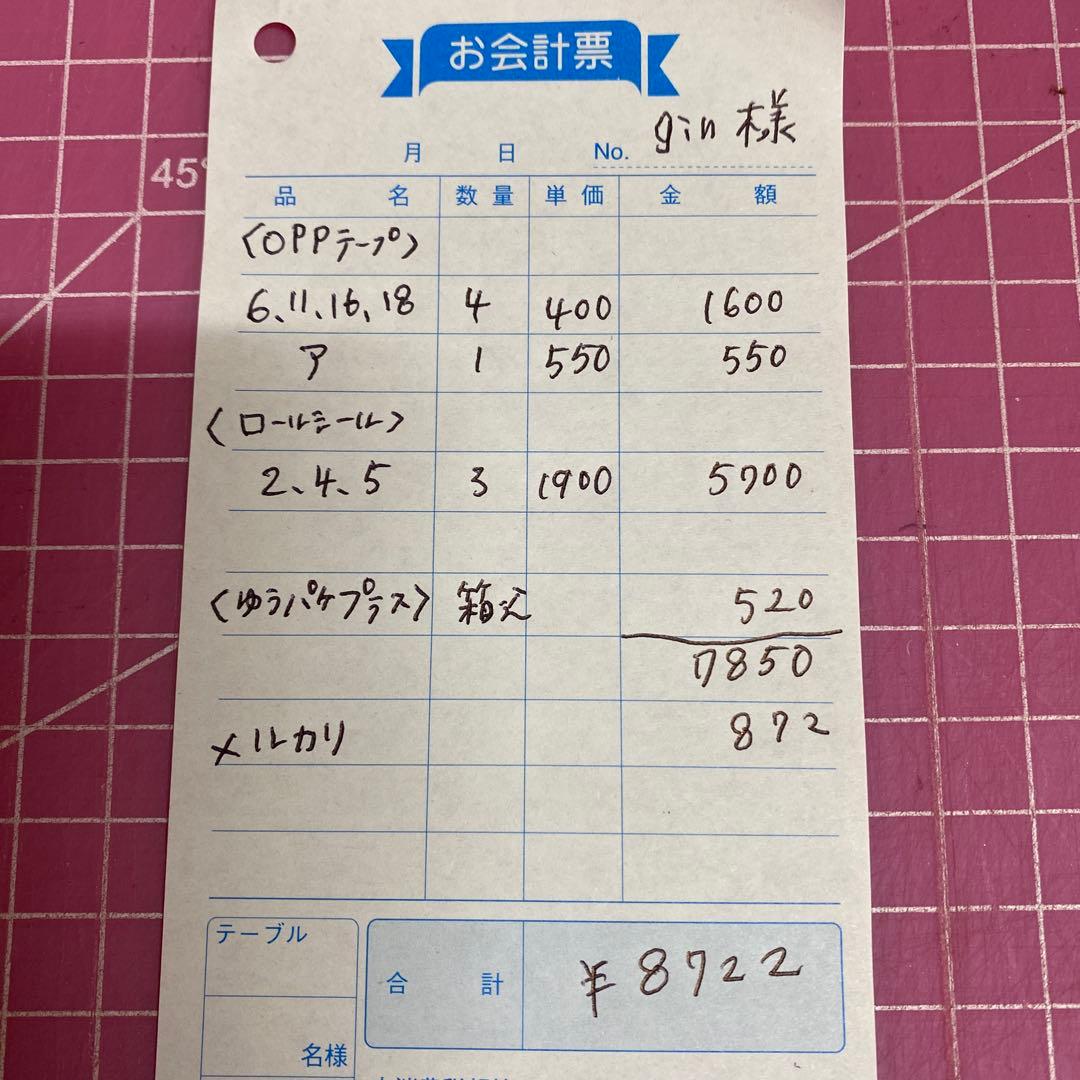 お会計票
gin 様
月 日 No.
45°
品名 数量 単価 金額
〈OPPテープ〉
6、11、16、18 4 400 1600
ア 1 550 550
〈ロールシール〉
2、4、5 3 1900 5700
〈ゆうパケプラス〉 箱込 520
7850
メルカリ 872
テーブル
合計 ¥8722
名様